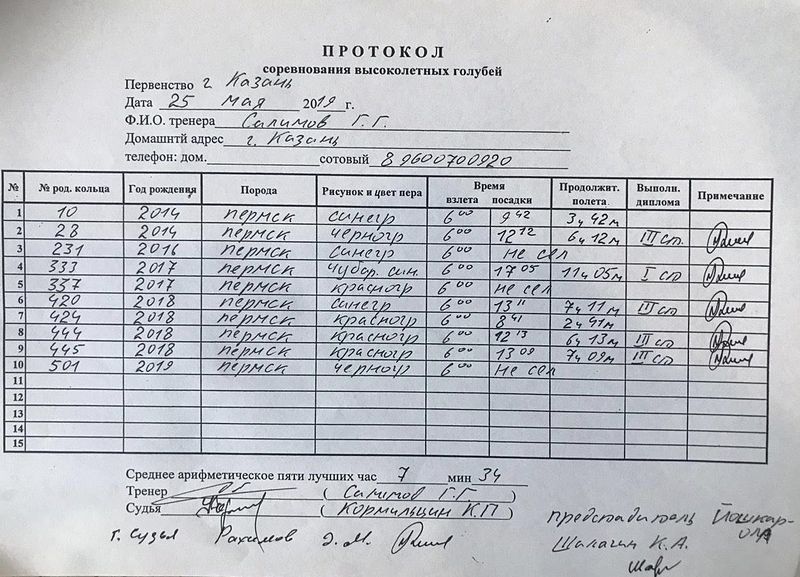 ПРОТОКОЛ
соревнования высоколетных голубей
Первенство г Казань
Дата 25 мая 2019 г.
Ф.И.О. тренера Салимов Г.Г.
Домашнтй адрес г. Казань
телефон: дом. сотовый 89600700920
№ № род. кольца Год рождения Порода Рисунок и цвет пера Время взлета посадки Продолжит. полета Выполн. диплома Примечание
1 10 2014 пермск синегр 6 00 9 42 3ч 42м
2 28 2014 пермск черногр 6 00 12 12 6ч 12м III ст.
3 231 2016 пермск синегр 6 00 не сел
4 333 2017 пермск чубар. син. 6 00 17 05 11ч 05м I ст
5 337 2017 пермск красногр 6 00 не сел
6 420 2018 пермск синегр 6 00 13 11 7ч 11м III ст
7 424 2018 пермск красногр 6 00 8 41 2ч 41м
8 444 2018 пермск красногр 6 00 12 13 6ч 13м III ст
9 445 2018 пермск красногр 6 00 13 09 7ч 09м III ст
10 501 2019 пермск черногр 6 00 не сел
11
12
13
14
15
Среднее арифметическое пяти лучших час 7 мин 34
Тренер (Салимов Г.Г)
Судья (Кормильцин К.П)
Г. Судья Рахимов Э.М.
представитель Йошкар-
ола
Шалагин К.А.